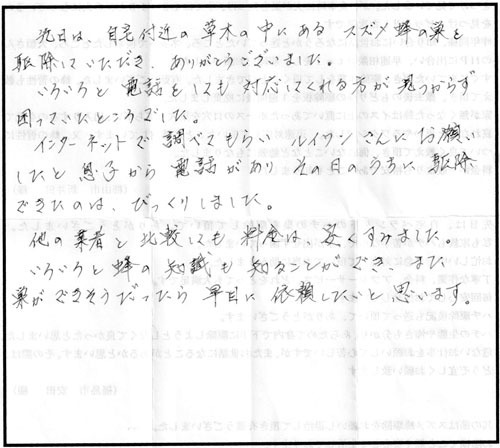 先日は、自宅付近の草木の中にあるスズメ蜂の巣を
駆除していただき、ありがとうございました。
いろいろと電話をしても対応してくれる方が見つからず
困っていたところでした。
インターネットで調べてもらいルイワンさんにお願い
したと息子から電話があり、その日のうちに駆除
できたのは、びっくりしました。
他の業者と比較しても料金は安くすみました。
いろいろと蜂の知識も知ることができ、また
巣ができそうだったら早目に依頼したいと思います。